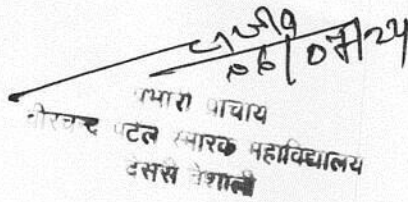 06/07/24
प्रभारी प्राचार्य
वीरचन्द पटेल स्मारक महाविद्यालय
देसरी वैशाली